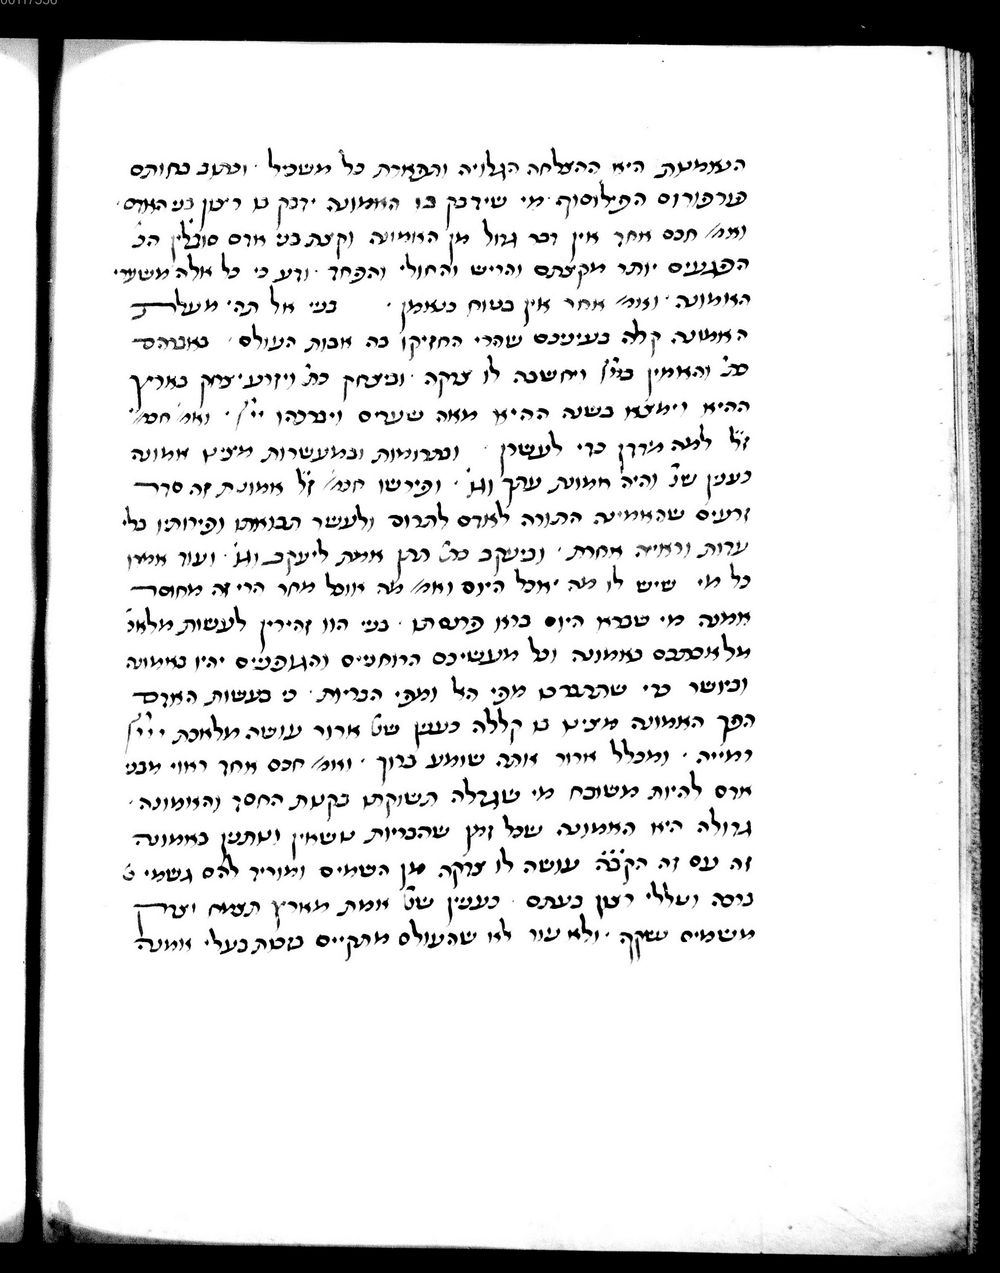 הנאמנת היא ההצלחה הגלויה ותפארת כל משכיל · וכתוב בחותם
פורפורוס הפילוסוף מי שידבק בו האמונה ידבק בו רצון בני האדם ·
ואמ׳ חכם אחד אין דבר גדול מן האמונה וקצת בני אדם סובלין הכ׳
הפגעים יותר מקצתם והריש והחולי והפחד · ודע כי כל אלה משערי
האמונה · ואמ׳ אחר אין בטוח כנאמן · בני אל תהי מעלת
האמונה קלה בעיניכם שהרי החזיקו בה אבות העולם · באברהם
כת׳ והאמין ביי׳ ויחשבה לו צדקה · וביצחק כת׳ ויזרע יצחק בארץ
ההיא וימצא בשנה ההיא מאה שערים ויברכהו יי׳ · ואמ׳ חכמי׳
ז״ל למה מדדן כדי לעשרן · ובתרומות ובמעשרות מצינו אמונה
כענין שנ׳ והיה אמונת עתך וגו׳ · ופירשו חכמ׳ ז״ל אמונת זה סדר
זרעים שהאמינה התורה לאדם לתרום ולעשר תבואתו ופירותיו בלי
עדות וראייה אחרת · וביעקב כת׳ תתן אמת ליעקב וגו׳ · ועוד אמרו
כל מי שיש לו מה יאכל היום ואמ׳ מה אוכל מחר הרי זה מחוסר
אמנה מי שברא היום ברא פרנסתו · בני הוו זהירין לעשות מלאכ׳
מלאכתכם באמונה וכל מעשיכם הרוחניים והגופניים יהיו באמונה
וביושר כדי שתתברכו מפי האל ומפי הבריות · כי בעשות האדם
הפך האמונה מצינו בו קללה כענין שנ׳ ארור עושה מלאכת ייי׳
רמייה · ומכלל ארור אתה שומע ברוך · ואמ׳ חכם אחד ראוי מבני
אדם להיות משובח מי שגדלה תשוקתו בקנות החסד והאמונה ·
גדולה היא האמונה שכל זמן שהבריות נושאין ונותנין באמונה
זה עם זה הקב״ה עושה לו צדקה מן השמים ומוריד להם גשמי
ברכה וטללי רצון בעתם · כענין שנ׳ אמת מארץ תצמח וצדק
משמים נשקף · ולא עוד לא שהעולם מתקיים בזכות בעלי אמנה